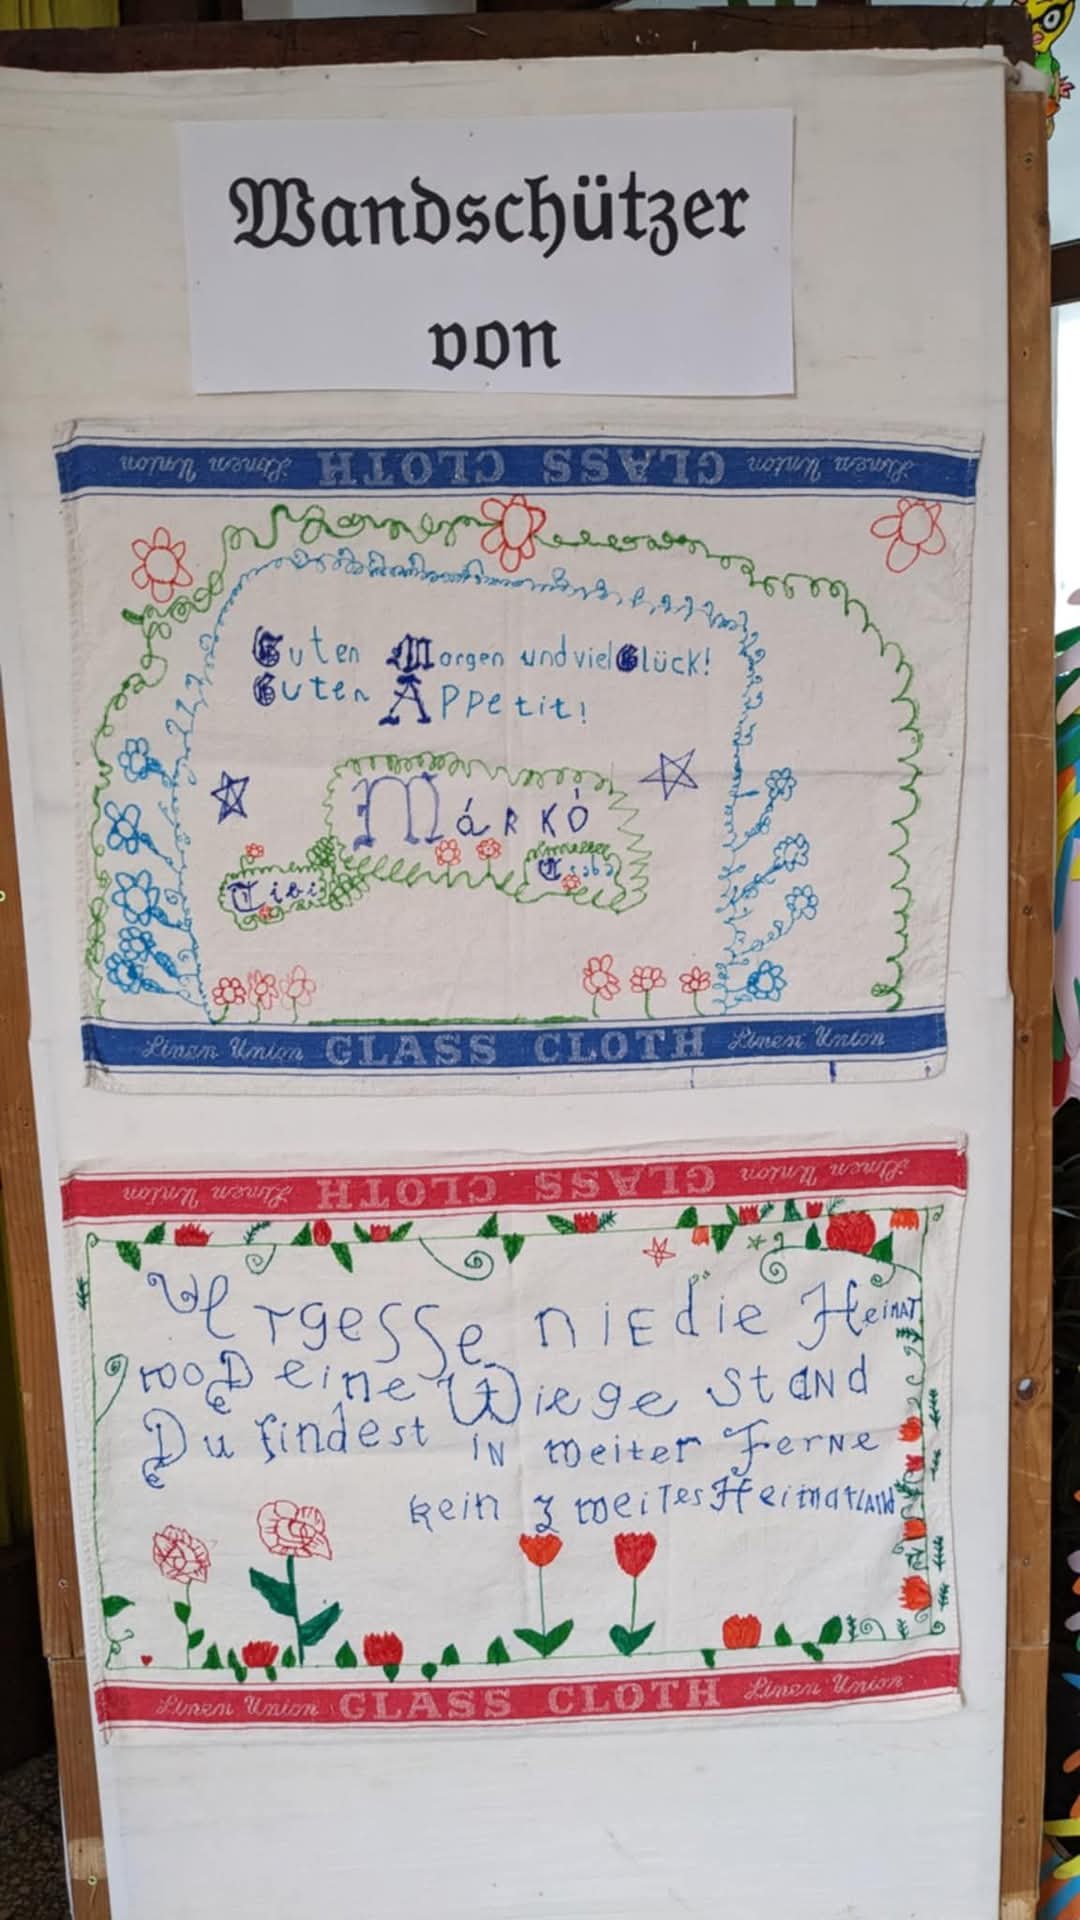 Wandschützer
von
Linen Union GLASS CLOTH Linen Union
Guten Morgen und viel Glück!
Guten Appetit!
Márkó
Tibi
Csaba
Linen Union GLASS CLOTH Linen Union
Linen Union GLASS CLOTH Linen Union
Vergesse nie die Heimat
wo Deine Wiege stand
Du findest in weiter Ferne
kein zweites Heimatland
Linen Union GLASS CLOTH Linen Union